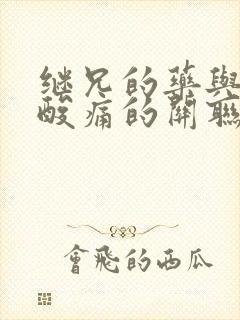 继兄的藥與
酸痛的關聯
會飛的西瓜